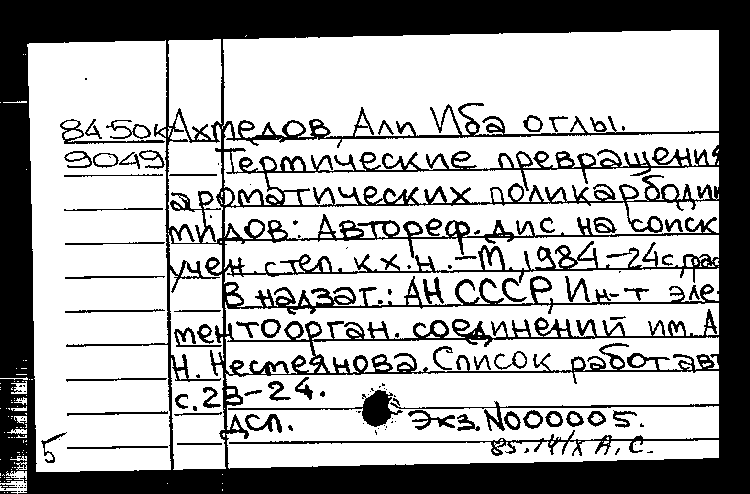 84-50к Ахмедов, Али Иба оглы.
9049 Термические превращения
ароматических поликарбодии
мидов: Автореф. дис. на соиск
учен. степ. к.х.н. -М., 1984.-24с, граф
В надзаг.: АН СССР, Ин-т эле-
ментоорган. соединений им. А
Н. Несмеянова. Список работ авт
с. 23-24.
ДСП. Экз. N000005.
5 85.14/X А. С.